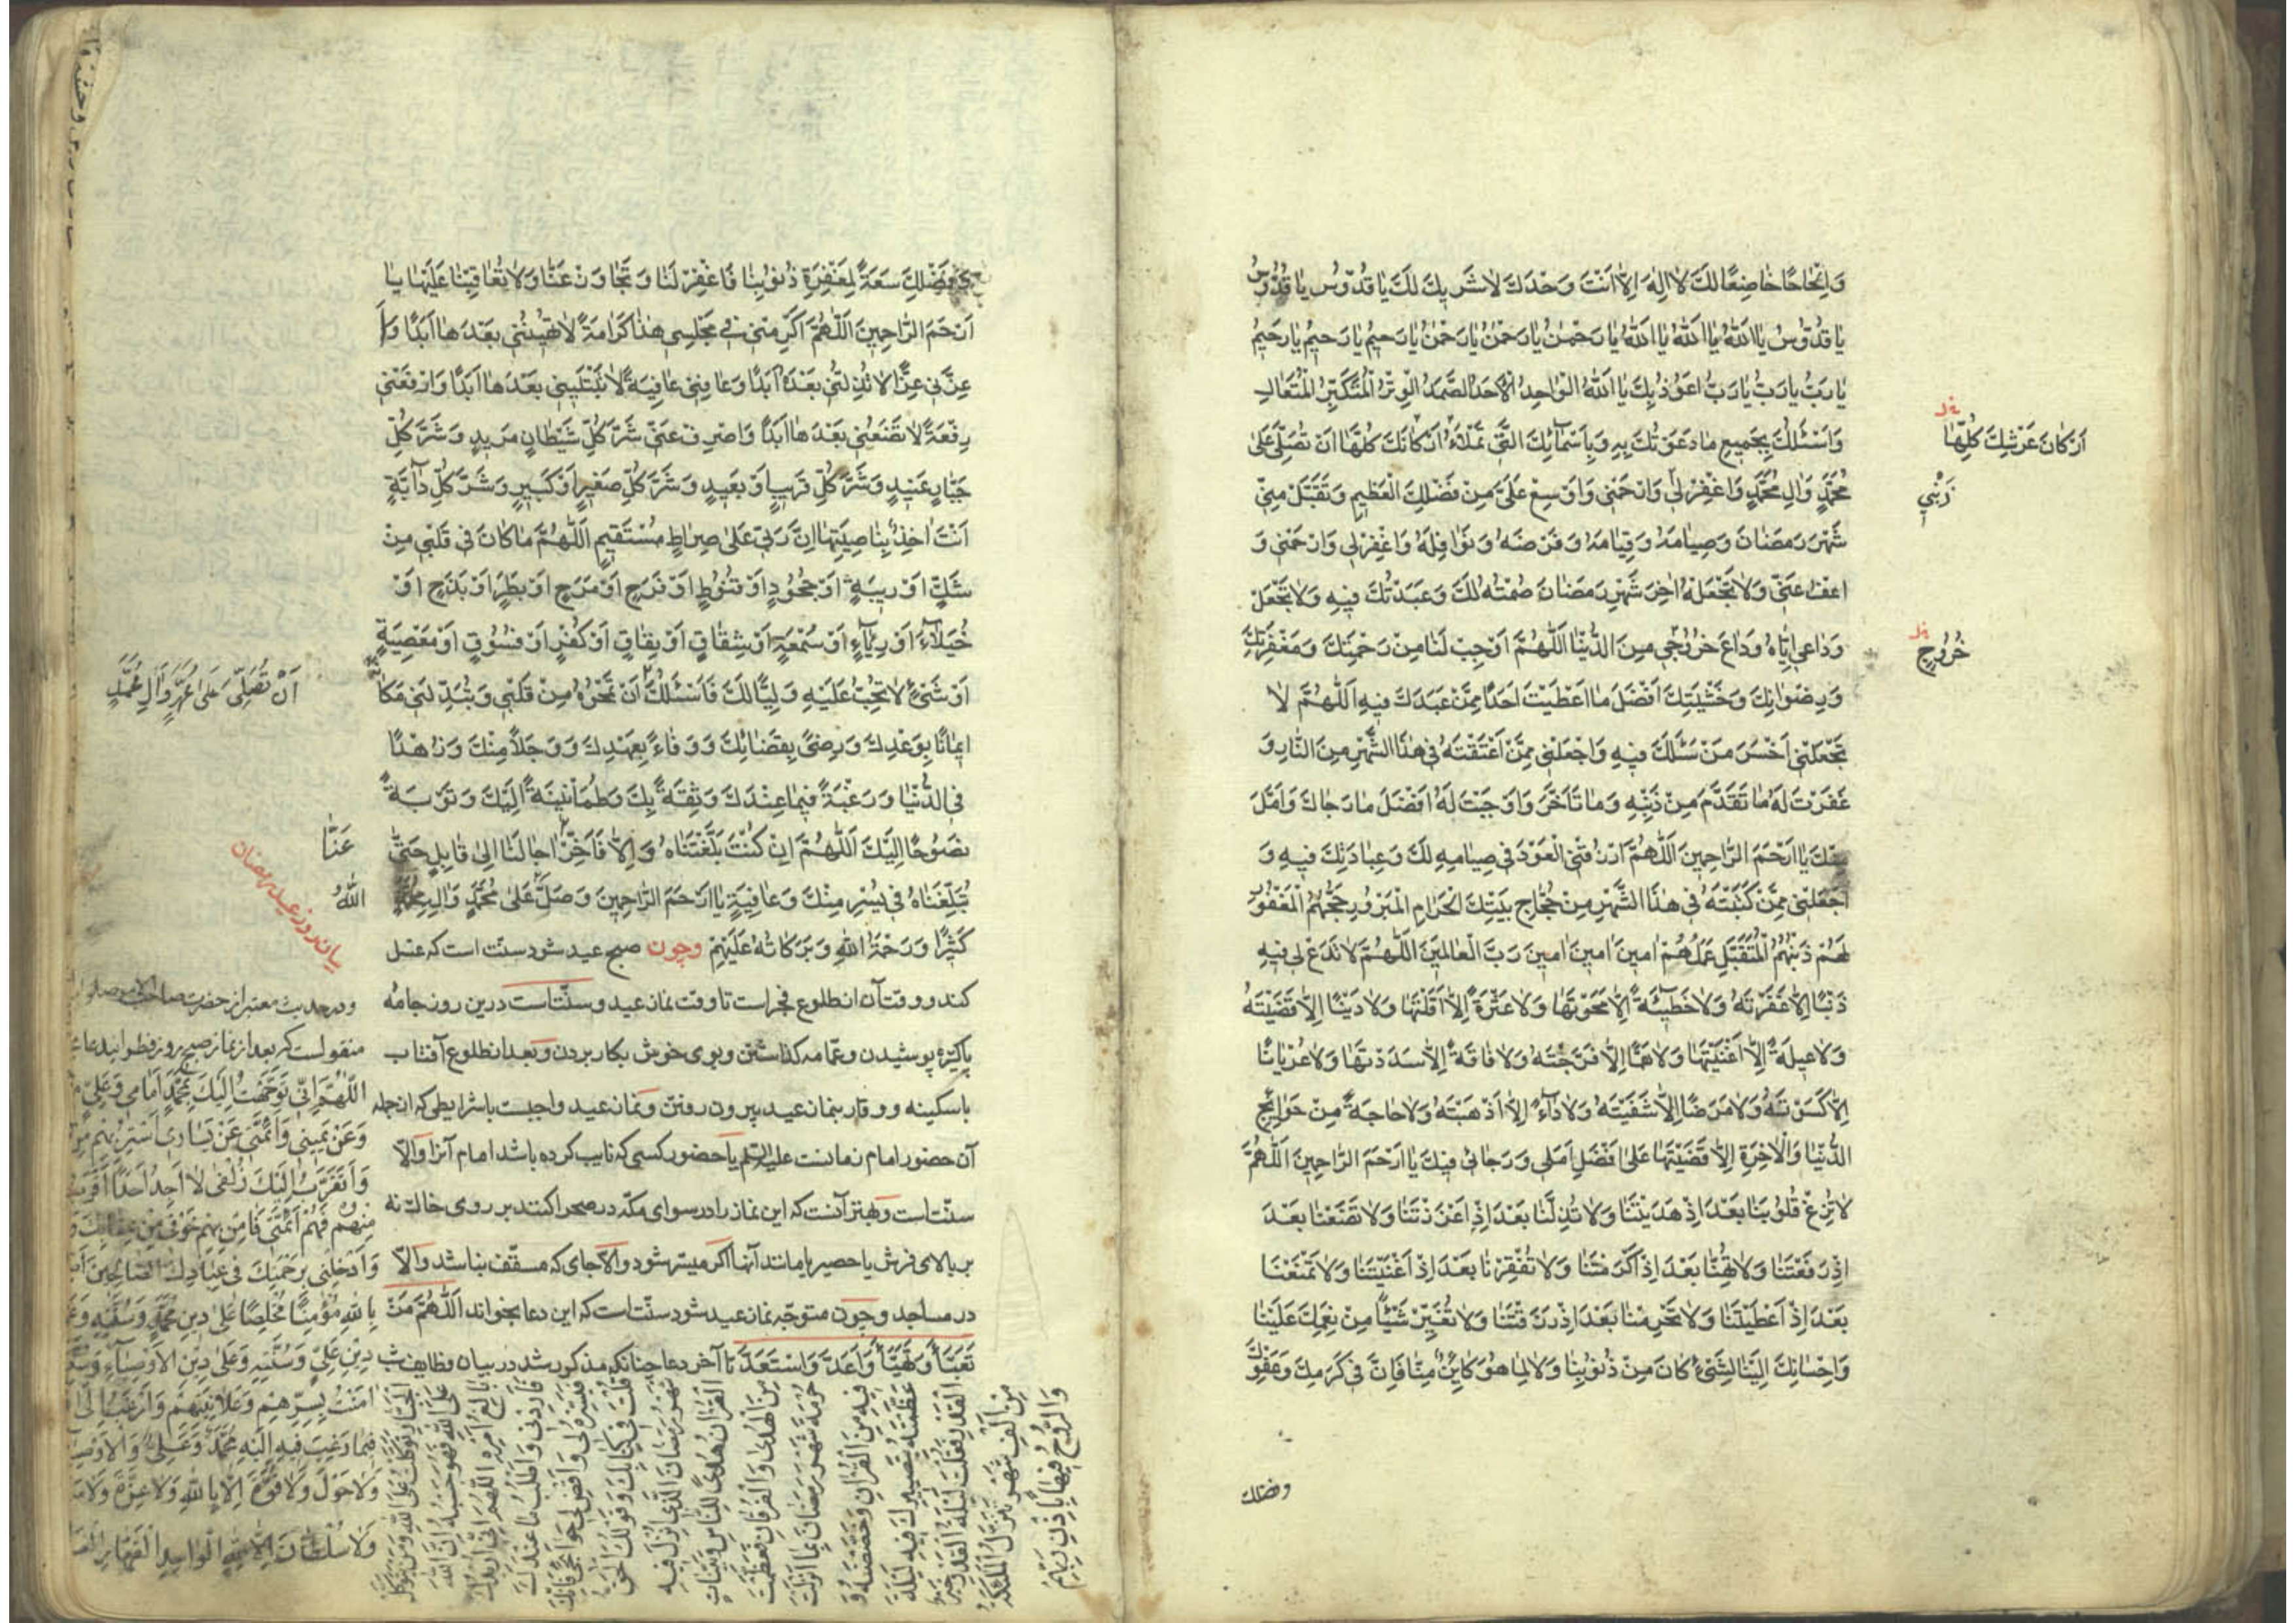 وَانِجٰاحًا خٰاضِعًا لَكَ لاٰ اِلٰهَ اِلاّٰ اَنْتَ وَحْدَكَ لاٰ شَرٖيكَ لَكَ يٰا قُدُّوسُ يٰا قُدُّوسُ
يٰا قُدُّوسُ يٰا اَللّٰهُ يٰا اَللّٰهُ يٰا اَللّٰهُ يٰا رَحْمٰنُ يٰا رَحْمٰنُ يٰا رَحْمٰنُ يٰا رَحٖيمُ يٰا رَحٖيمُ يٰا رَحٖيمُ
يٰا رَبُّ يٰا رَبُّ يٰا رَبُّ اَعُوذُ بِكَ يٰا اَللّٰهُ الْوٰاحِدُ الْاَحَدُ الصَّمَدُ الْوِتْرُ الْمُتَكَبِّرُ الْمُتَعٰالِ
وَاَسْئَلُكَ بِجَمٖيعِ مٰا دَعَوْتُكَ بِهِ وَبِاَسْمٰآئِكَ الَّتٖي تَمْلَاُ اَرْكٰانَكَ كُلَّهٰا اَنْ تُصَلِّيَ عَلىٰ
مُحَمَّدٍ وَاٰلِ مُحَمَّدٍ وَاغْفِرْ لٖي وَارْحَمْنٖي وَاَوْسِعْ عَلَيَّ مِنْ فَضْلِكَ الْعَظٖيمِ وَتَقَبَّلْ مِنّٖي
شَهْرَ رَمَضٰانَ وَصِيٰامَهُ وَقِيٰامَهُ وَفَرْضَهُ وَنَوٰافِلَهُ وَاغْفِرْ لٖي وَارْحَمْنٖي وَ
اعْفُ عَنّٖي وَلاٰ تَجْعَلْهُ اٰخِرَ شَهْرِ رَمَضٰانَ صُمْتُهُ لَكَ وَعَبَدْتُكَ فٖيهِ وَلاٰ تَجْعَلْ
وَدٰاعٖي اِيّٰاهُ وَدٰاعَ خُرُوجٖي مِنَ الدُّنْيٰا اَللّٰهُمَّ اَوْجِبْ لَنٰا مِنْ رَحْمَتِكَ وَمَغْفِرَتِكَ
وَرِضْوٰانِكَ وَخَشْيَتِكَ اَفْضَلَ مٰا اَعْطَيْتَ اَحَدًا مِمَّنْ عَبَدَكَ فٖيهِ اَللّٰهُمَّ لاٰ
تَجْعَلْنٖي اَخْسَرَ مَنْ سَئَلَكَ فٖيهِ وَاجْعَلْنٖي مِمَّنْ اَعْتَقْتَهُ فٖي هٰذَا الشَّهْرِ مِنَ النّٰارِ وَ
غَفَرْتَ لَهُ مٰا تَقَدَّمَ مِنْ ذَنْبِهِ وَمٰا تَاَخَّرَ وَاَوْجَبْتَ لَهُ اَفْضَلَ مٰا رَجٰاكَ وَاَمَّلَ
مِنْكَ يٰا اَرْحَمَ الرّٰاحِمٖينَ اَللّٰهُمَّ ارْزُقْنِي الْعَوْدَ فٖي صِيٰامِهِ لَكَ وَعِبٰادَتِكَ فٖيهِ وَ
اجْعَلْنٖي مِمَّنْ كَتَبْتَهُ فٖي هٰذَا الشَّهْرِ مِنْ حُجّٰاجِ بَيْتِكَ الْحَرٰامِ الْمَبْرُورِ حَجُّهُمُ الْمَغْفُورِ
لَهُمْ ذَنْبُهُمُ الْمُتَقَبَّلِ عَمَلُهُمْ اٰمٖينَ اٰمٖينَ اٰمٖينَ رَبَّ الْعٰالَمٖينَ اَللّٰهُمَّ لاٰ تَدَعْ لٖي فٖيهِ
ذَنْبًا اِلاّٰ غَفَرْتَهُ وَلاٰ خَطٖيئَةً اِلاّٰ مَحَوْتَهٰا وَلاٰ عَثْرَةً اِلاّٰ اَقَلْتَهٰا وَلاٰ دَيْنًا اِلاّٰ قَضَيْتَهُ
وَلاٰ عَيْلَةً اِلاّٰ اَغْنَيْتَهٰا وَلاٰ هَمًّا اِلاّٰ فَرَّجْتَهُ وَلاٰ فٰاقَةً اِلاّٰ سَدَدْتَهٰا وَلاٰ عُرْيٰانًا
اِلاّٰ كَسَوْتَهُ وَلاٰ مَرَضًا اِلاّٰ شَفَيْتَهُ وَلاٰ دٰآءً اِلاّٰ اَذْهَبْتَهُ وَلاٰ حٰاجَةً مِنْ حَوٰائِجِ
الدُّنْيٰا وَالْاٰخِرَةِ اِلاّٰ قَضَيْتَهٰا عَلىٰ اَفْضَلِ اَمَلٖي وَرَجٰائٖي فٖيكَ يٰا اَرْحَمَ الرّٰاحِمٖينَ اَللّٰهُمَّ
لاٰ تُزِغْ قُلُوبَنٰا بَعْدَ اِذْ هَدَيْتَنٰا وَلاٰ تُذِلَّنٰا بَعْدَ اِذْ اَعْزَزْتَنٰا وَلاٰ تَضَعْنٰا بَعْدَ
اِذْ رَفَعْتَنٰا وَلاٰ تُهِنّٰا بَعْدَ اِذْ اَكْرَمْتَنٰا وَلاٰ تُفْقِرْنٰا بَعْدَ اِذْ اَغْنَيْتَنٰا وَلاٰ تَمْنَعْنٰا
بَعْدَ اِذْ اَعْطَيْتَنٰا وَلاٰ تَحْرِمْنٰا بَعْدَ اِذْ رَزَقْتَنٰا وَلاٰ تُغَيِّرْ شَيْئًا مِنْ نِعَمِكَ عَلَيْنٰا
وَاِحْسٰانِكَ اِلَيْنٰا لِشَيْءٍ كٰانَ مِنْ ذُنُوبِنٰا وَلاٰ لِمٰا هُوَ كٰايِنٌ مِنّٰا فَاِنَّ فٖي كَرَمِكَ وَعَفْوِكَ
وفضلك
اَرْكٰانَ عَرْشِكَ كُلَّهٰا
زِدْنٖي
خُرُوجٍ
وَفَضْلِكَ سَعَةً لِمَغْفِرَةِ ذُنُوبِنٰا فَاغْفِرْ لَنٰا وَتَجٰاوَزْ عَنّٰا وَلاٰ تُعٰاقِبْنٰا عَلَيْهٰا يٰا
اَرْحَمَ الرّٰاحِمٖينَ اَللّٰهُمَّ اَكْرِمْنٖي فٖي مَجْلِسٖي هٰذٰا كَرٰامَةً لاٰ تُهٖينُنٖي بَعْدَهٰا اَبَدًا وَاَ
عِزَّنٖي عِزًّا لاٰ تُذِلُّنٖي بَعْدَهُ اَبَدًا وَعٰافِنٖي عٰافِيَةً لاٰ تَبْتَلٖينٖي بَعْدَهٰا اَبَدًا وَارْفَعْنٖي
رِفْعَةً لاٰ تَضَعُنٖي بَعْدَهٰا اَبَدًا وَاصْرِفْ عَنّٖي شَرَّ كُلِّ شَيْطٰانٍ مَرٖيدٍ وَشَرَّ كُلِّ
جَبّٰارٍ عَنٖيدٍ وَشَرَّ كُلِّ قَرٖيبٍ اَوْ بَعٖيدٍ وَشَرَّ كُلِّ صَغٖيرٍ اَوْ كَبٖيرٍ وَشَرَّ كُلِّ دٰآبَّةٍ
اَنْتَ اٰخِذٌ بِنٰاصِيَتِهٰا اِنَّ رَبّٖي عَلىٰ صِرٰاطٍ مُسْتَقٖيمٍ اَللّٰهُمَّ مٰا كٰانَ فٖي قَلْبٖي مِنْ
شَكٍّ اَوْ رٖيبَةٍ اَوْ جُحُودٍ اَوْ قُنُوطٍ اَوْ فَرَحٍ اَوْ مَرَحٍ اَوْ بَطَرٍ اَوْ بَذَخٍ اَوْ
خُيَلاٰءَ اَوْ رِيٰآءٍ اَوْ سُمْعَةٍ اَوْ شِقٰاقٍ اَوْ نِفٰاقٍ اَوْ كُفْرٍ اَوْ فُسُوقٍ اَوْ مَعْصِيَةٍ
اَوْ شَيْءٍ لاٰ تُحِبُّ عَلَيْهِ وَلِيًّا لَكَ فَاَسْئَلُكَ اَنْ تَمْحُوَهُ مِنْ قَلْبٖي وَتُبَدِّلَنٖي مَكٰانَهُ
اٖيمٰانًا بِوَعْدِكَ وَرِضًى بِقَضٰائِكَ وَوَفٰاءً بِعَهْدِكَ وَوَجَلاً مِنْكَ وَزُهْدًا
فِي الدُّنْيٰا وَرَغْبَةً فٖيمٰا عِنْدَكَ وَثِقَةً بِكَ وَطُمَأْنٖينَةً اِلَيْكَ وَتَوْبَةً
نَصُوحًا اِلَيْكَ اَللّٰهُمَّ اِنْ كُنْتَ بَلَّغْتَنٰاهُ وَاِلاّٰ فَاَخِّرْ اٰجٰالَنٰا اِلىٰ قٰابِلٍ حَتّٰى
تُبَلِّغَنٰاهُ فٖي يُسْرٍ مِنْكَ وَعٰافِيَةٍ يٰا اَرْحَمَ الرّٰاحِمٖينَ وَصَلَّى عَلىٰ مُحَمَّدٍ وَاٰلِ مُحَمَّدٍ
كَثٖيرًا وَرَحْمَةُ اللّٰهِ وَبَرَكٰاتُهُ عَلَيْهِمْ وچون صبح عيد شود سنّت است كه غسل
كند و وقت آن از طلوع فجر است تا وقت نماز عيد و سنّت است درين روز جامهٔ
پاكيزه پوشيدن و عمّامه گذاشتن و بوى خوش بكار بردن و بعد از طلوع آفتاب
با سكينه و وقار بنماز عيد بيرون رفتن و نماز عيد واجبست با شرايطى كه از جمله
آن حضور امام زمانست عليه السّلم يا حضور كسى كه نايب كرده باشد امام آنرا والاّ
سنّت است و بهتر آنست كه اين نماز را در سواى مكّه در صحرا كنند بر روى خاك نه
بر بالاى فرش يا حصير يا مانند آنها اگر ميسّر شود والاّ جاى كه مسقّف نباشد والاّ
در مساجد و چون متوجّه نماز عيد شود سنّت است كه اين دعا بخواند اَللّٰهُمَّ مَنْ
تَعَبَّاَ وَتَهَيَّاَ وَاَعَدَّ وَاسْتَعَدَّ تا آخر دعا چنانكه مذكور شد در بيان وظايف شب
اَنْ تُصَلِّيَ عَلىٰ مُحَمَّدٍ وَاٰلِ مُحَمَّدٍ
عَنّٰا
اللّٰهُ
بيان روز عيد رمضان
ودر حديث معتبر از حضرت صاحب الامر
منقولست كه بعد از نماز صبح روز فطر
اللّٰهُمَّ اِنّٖي تَوَجَّهْتُ اِلَيْكَ بِمُحَمَّدٍ اَمٰامٖي وَعَلِيٍّ
وَعَنْ يَمٖينٖي وَاَئِمَّتٖي عَنْ يَسٰارٖي اَسْتَتِرُ بِهِمْ
وَاَتَقَرَّبُ اِلَيْكَ زُلْفىٰ لاٰ اَجِدُ اَحَدًا اَقْرَبَ
مِنْهُمْ فَهُمْ اَئِمَّتٖي فَاٰمِنْ بِهِمْ خَوْفٖي مِنْ عِقٰابِكَ
وَاَدْخِلْنٖي بِرَحْمَتِكَ فٖي عِبٰادِكَ الصّٰالِحٖينَ
بِاللّٰهِ مُؤْمِنًا مُخْلِصًا عَلىٰ دٖينِ مُحَمَّدٍ وَسُنَّتِهِ
دٖينِ عَلِيٍّ وَسُنَّتِهِ وَعَلىٰ دٖينِ الْاَوْصِيٰآءِ
اٰمَنْتُ بِسِرِّهِمْ وَعَلاٰنِيَتِهِمْ وَاَرْغَبُ اِلَى
فٖيمٰا رَغِبَ فٖيهِ اِلَيْهِ مُحَمَّدٌ وَعَلِيٌّ
وَلاٰ حَوْلَ وَلاٰ قُوَّةَ اِلاّٰ بِاللّٰهِ وَلاٰ عِزَّةَ
وَلاٰ سُلْطٰانَ اِلاّٰ لِلّٰهِ الْوٰاحِدِ الْقَهّٰارِ
تَوَكَّلْتُ عَلَى اللّٰهِ وَمَنْ يَتَوَكَّلْ
عَلَى اللّٰهِ فَهُوَ حَسْبُهُ اِنَّ اللّٰهَ
بٰالِغُ اَمْرِهِ اَللّٰهُمَّ اِنّٖي اُرٖيدُكَ
فَاَرِدْنٖي وَاَطْلُبُ مٰا عِنْدَكَ
فَيَسِّرْهُ لٖي وَاقْضِ لٖي حَوٰائِجٖي فَاِنَّكَ
قُلْتَ فٖي كِتٰابِكَ وَقَوْلُكَ الْحَقُّ
شَهْرُ رَمَضٰانَ الَّذٖي اُنْزِلَ فٖيهِ
الْقُرْاٰنُ هُدًى لِلنّٰاسِ وَبَيِّنٰاتٍ
مِنَ الْهُدىٰ وَالْفُرْقٰانِ فَعَظَّمْتَ
حُرْمَةَ شَهْرِ رَمَضٰانَ بِمٰا اَنْزَلْتَ
فٖيهِ مِنَ الْقُرْاٰنِ وَخَصَصْتَهُ وَ
عَظَّمْتَهُ بِتَصْيٖيرِكَ فٖيهِ لَيْلَةَ
الْقَدْرِ فَقُلْتَ لَيْلَةُ الْقَدْرِ خَيْرٌ
مِنْ اَلْفِ شَهْرٍ تَنَزَّلُ الْمَلٰئِكَةُ
وَالرُّوحُ فٖيهٰا بِاِذْنِ رَبِّهِمْ